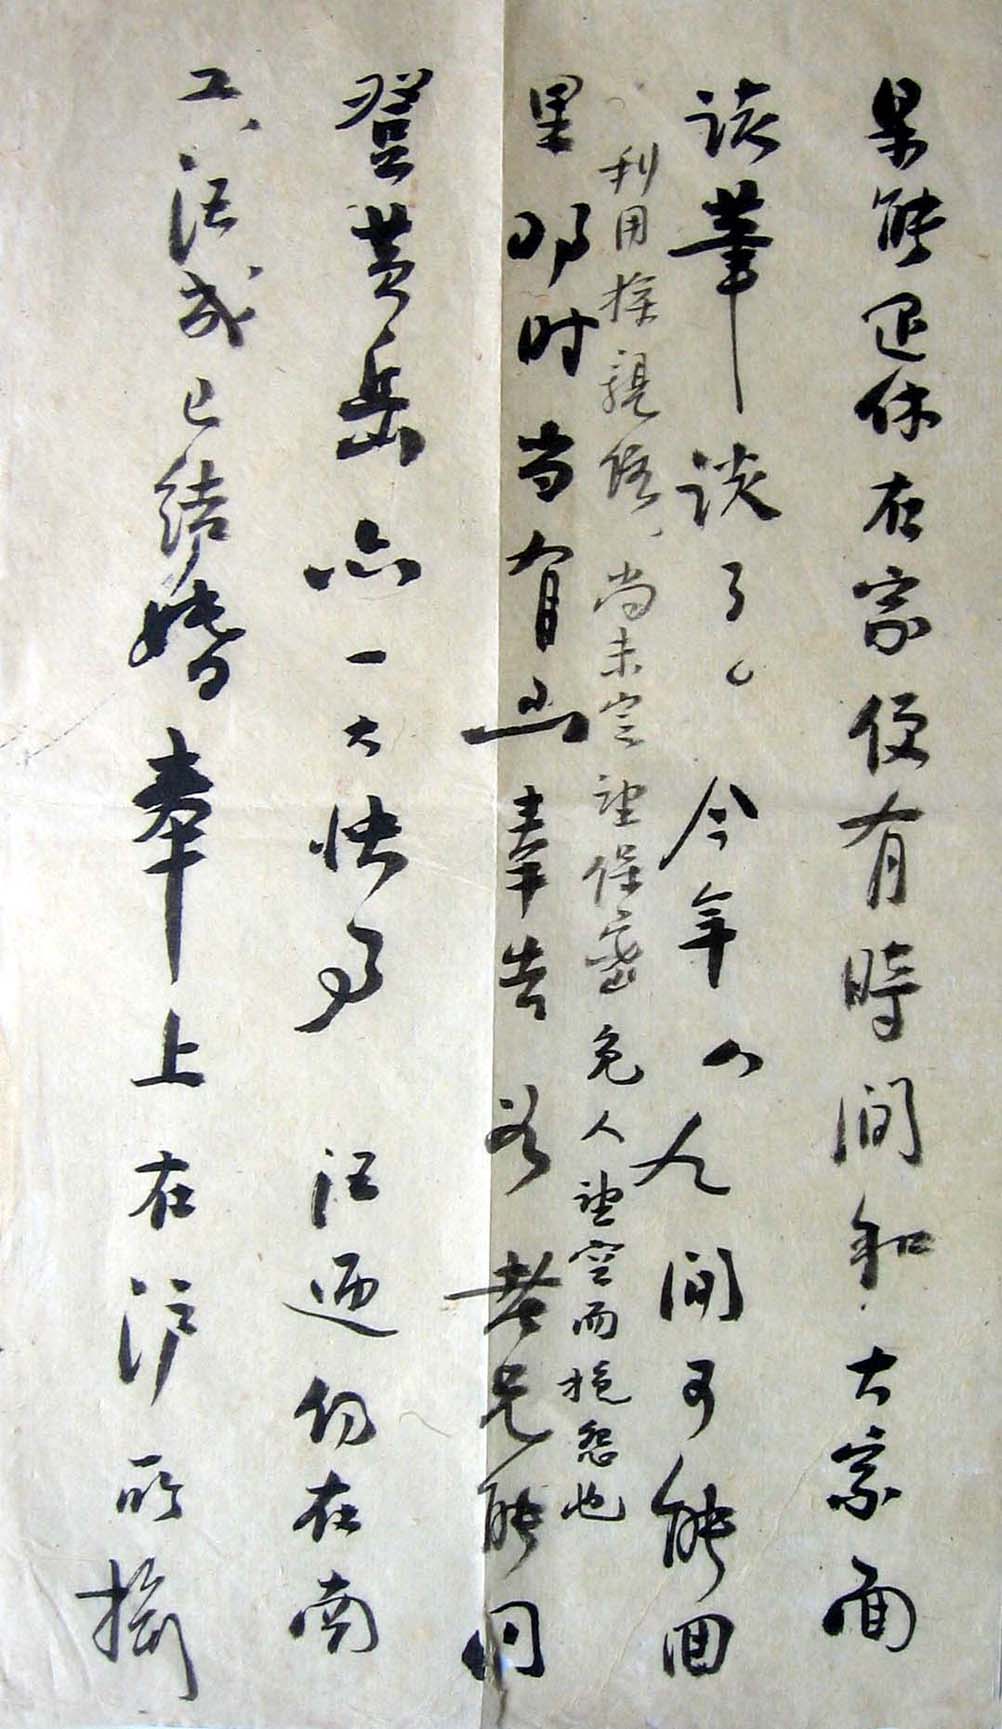 果能退休在家便有時间和大家面
谈笔谈了。今年八九间可能回
利用探親假、尚未定望保密免人望空而抱怨也
里那时当有函奉告若老兄能同
登黄岳亦一大快事 汪迺仍在南
工、汪成已结婚奉上在沪所摄